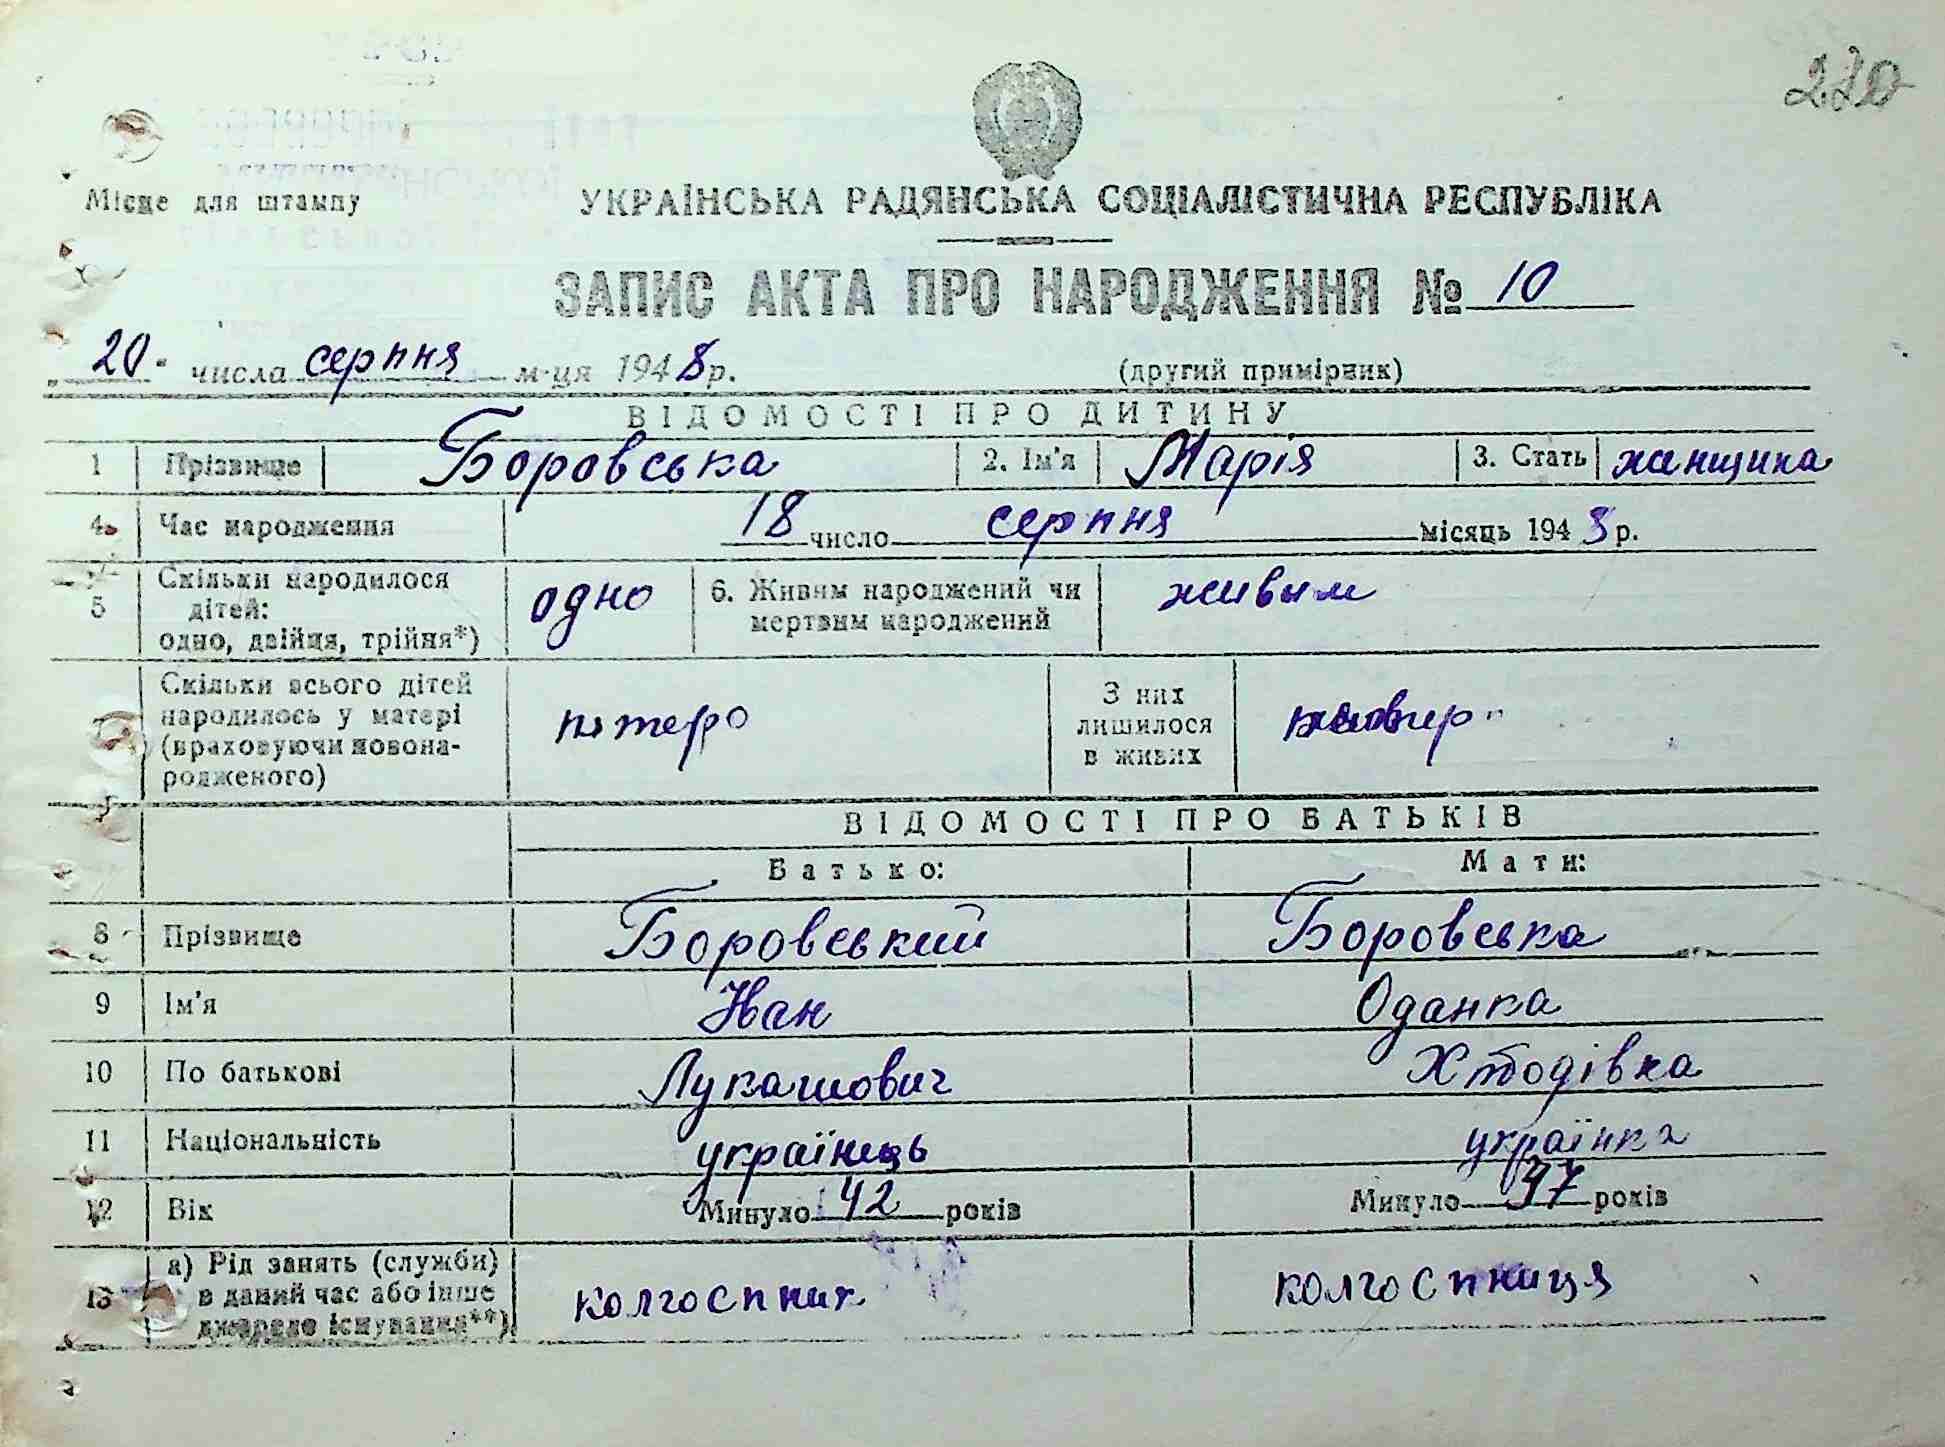 220
Місце для штампу
УКРАЇНСЬКА РАДЯНСЬКА СОЦІАЛІСТИЧНА РЕСПУБЛІКА
ЗАПИС АКТА ПРО НАРОДЖЕННЯ № 10
„20" числа серпня м-ця 1948 р. (другий примірник)
ВІДОМОСТІ ПРО ДИТИНУ
1 Прізвище Боровська 2. Ім'я Марія 3. Стать женщина
4. Час народження 18 число серпня місяць 1948 р.
5 Скільки народилося дітей: одно, двійця, трійня*) одно 6. Живим народжений чи мертвим народжений живым
Скільки всього дітей народилось у матері (враховуючи новонародженого) пятеро З них лишилося в живих
ВІДОМОСТІ ПРО БАТЬКІВ
Батько: Мати:
8 Прізвище Боровський Боровська
9 Ім'я Іван Оданка
10 По батькові Лукашович
11 Національність українець українка
12 Вік Минуло 42 років Минуло 37 років
13 а) Рід занять (служби) в даний час або інше джерело існування**) колгоспник колгоспниця